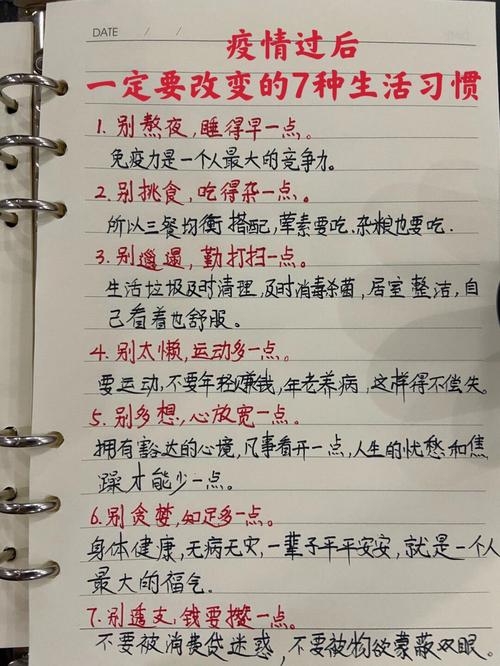 DATE / /
疫情过后
一定要改变的7种生活习惯
1. 别熬夜，睡得早一点。
免疫力是一个人最大的竞争力。
2. 别挑食，吃得杂一点。
所以三餐均衡搭配，荤素要吃.杂粮也要吃.
3. 别邋遢，勤打扫一点。
生活垃圾及时清理，及时消毒杀菌，居室整洁，自
己看着也舒服。
4. 别太懒，运动多一点。
要运动，不要年轻赚钱，年老养病，这样得不偿失。
5. 别多想，心放宽一点。
拥有豁达的心境，凡事看开一点，人生的忧愁和焦
躁才能少一点。
6. 别贪婪，知足多一点。
身体健康，无病无灾，一辈子平平安安，就是一个人
最大的福气。
7. 别透支，钱要攒一点。
不要被消费贷迷惑，不要被物欲蒙蔽双眼。